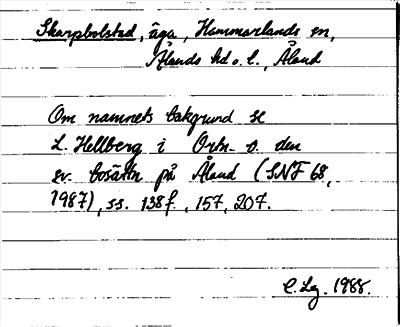 Skarpbolstad, äga, Hammarlands sn,
Ålands hd o. l., Åland
Om namnets bakgrund se
L. Hellberg i Ortn. o. den
sv. bosättn på Åland (SNF 68,
1987), ss. 138f., 157, 207.
1988.